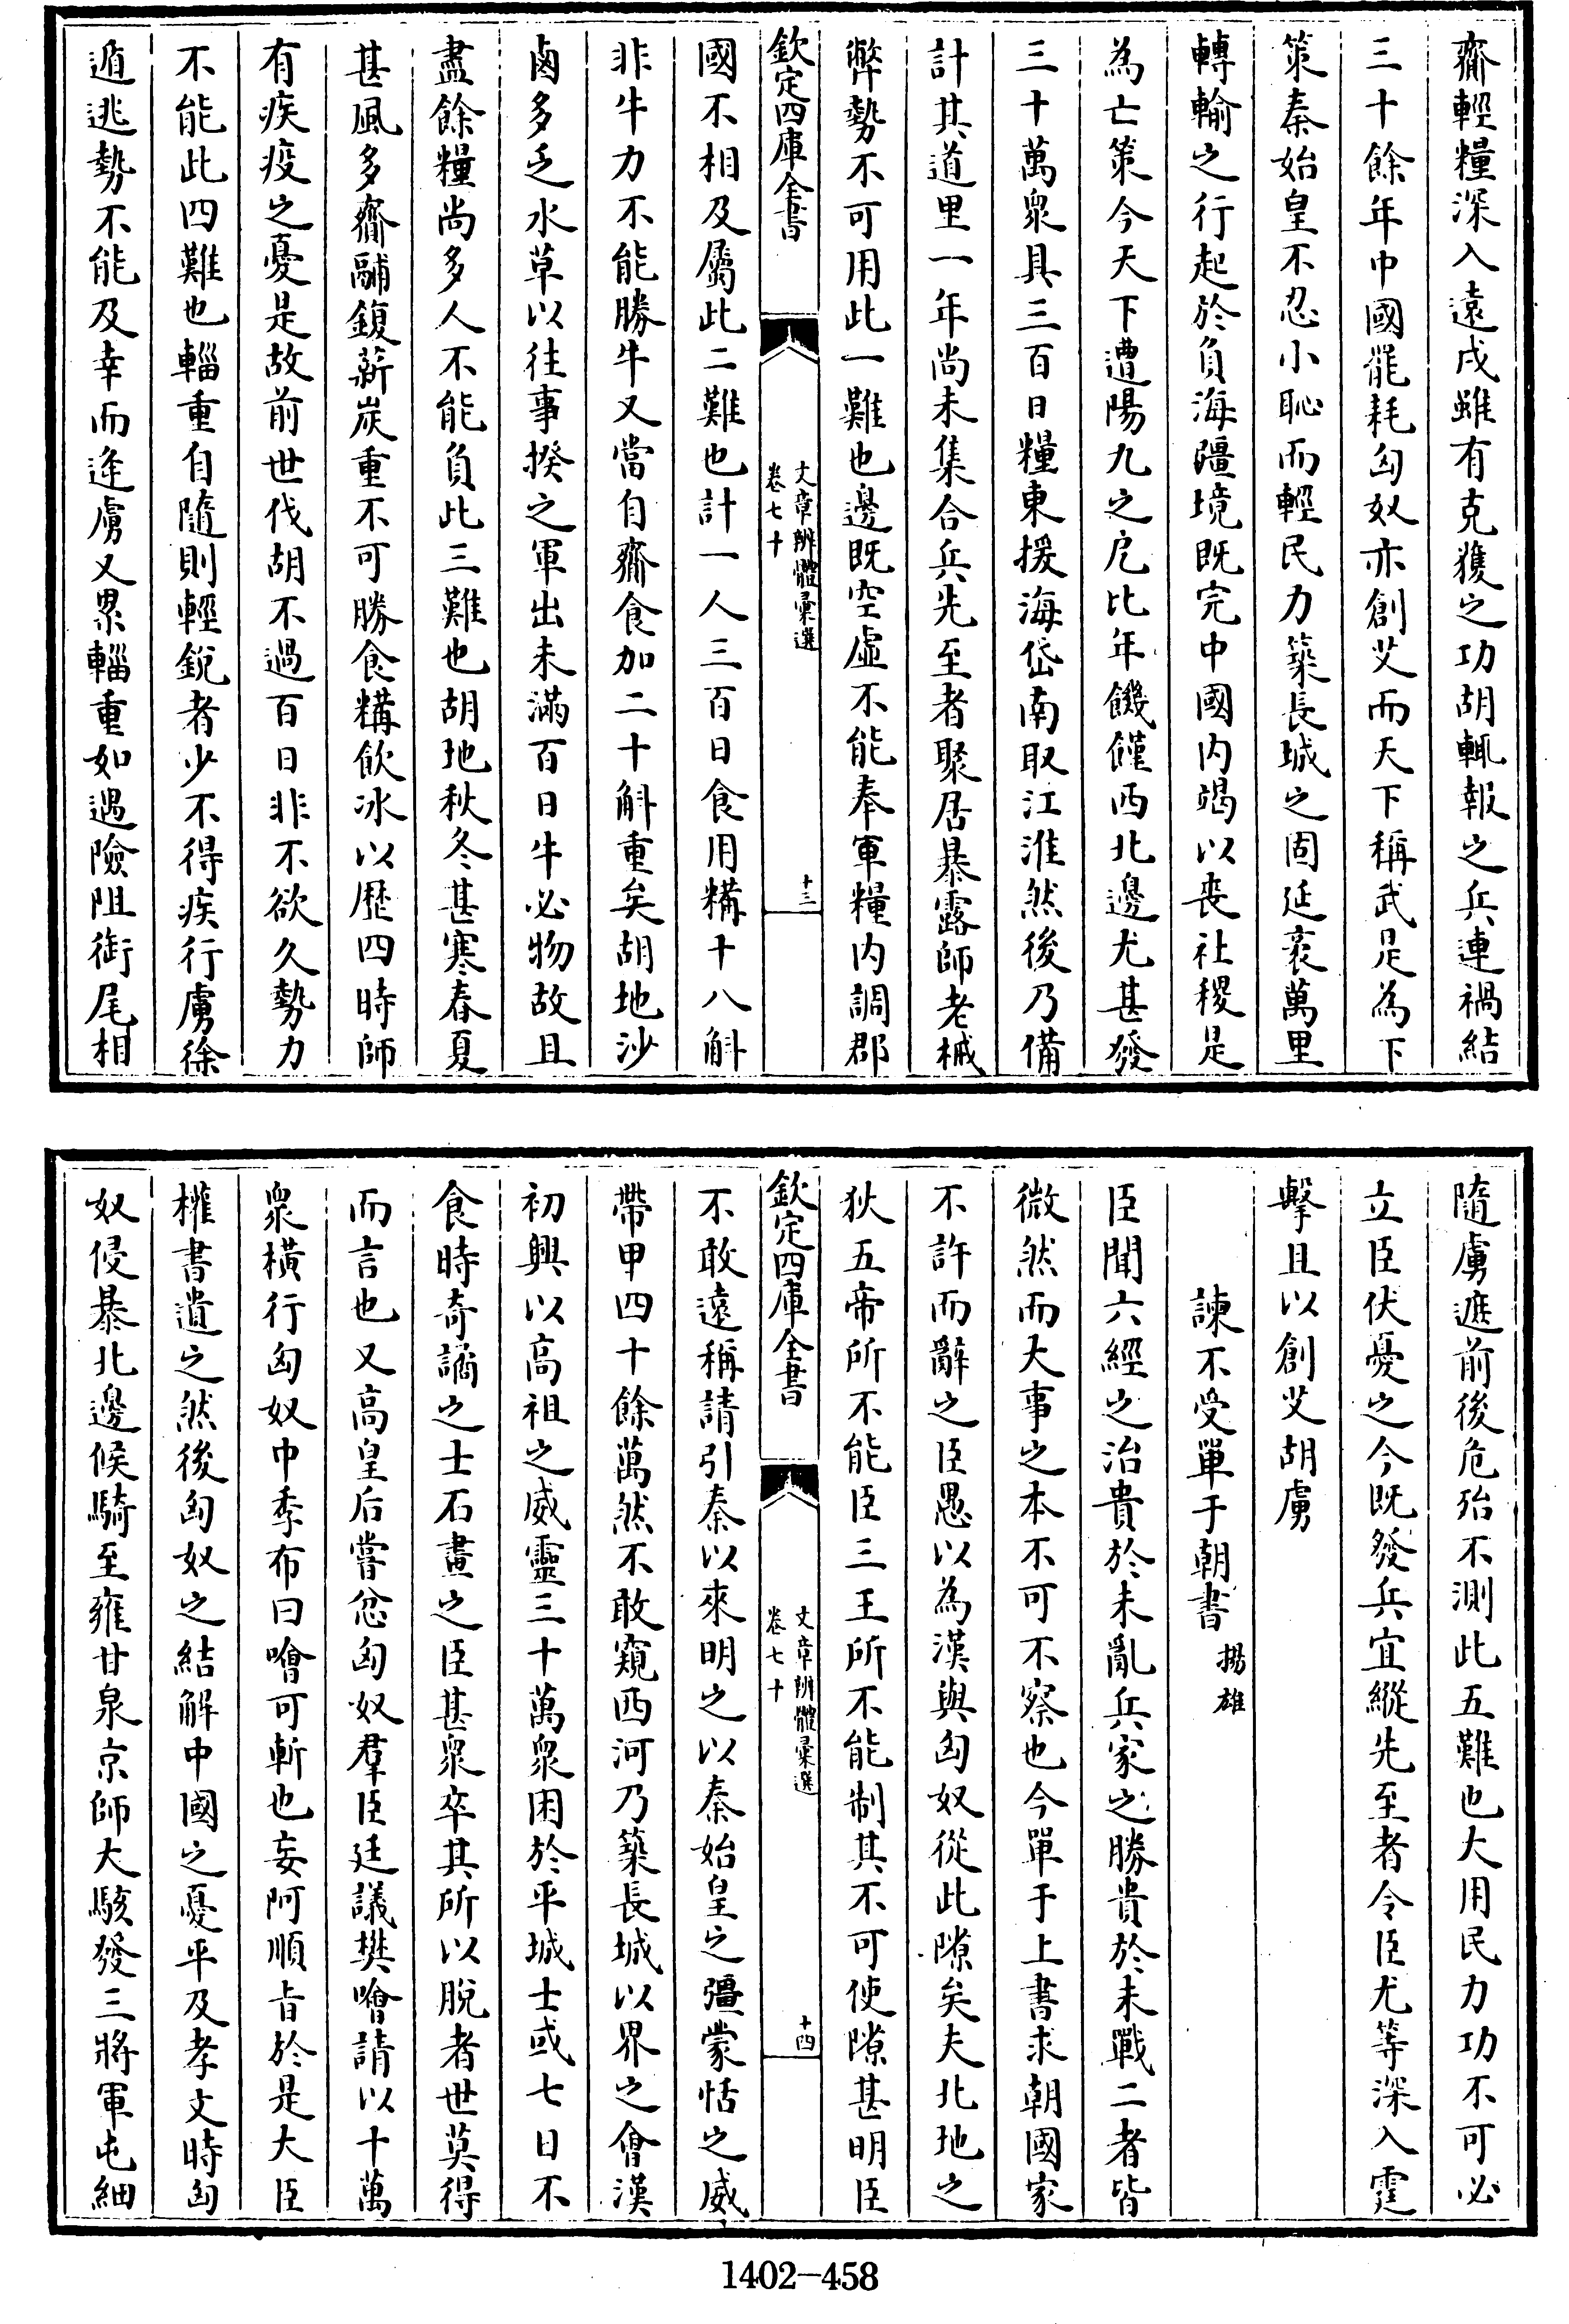 齎輕糧深入遠戍雖有克獲之功胡輒報之兵連禍結
三十餘年中國罷耗匈奴亦創艾而天下稱武是為下
策秦始皇不忍小恥而輕民力築長城之固延袤萬里
轉輸之行起於負海疆境既完中國内竭以喪社稷是
為亡策今天下遭陽九之戹比年饑饉西北邊尤甚發
三十萬衆具三百日糧東援海岱南取江淮然後乃備
計其道里一年尚未集合兵先至者聚居暴露師老械
弊勢不可用此一難也邊既空虛不能奉軍糧内調郡
欽定四庫全書
文章辨體彙選
卷七十
十三
國不相及屬此二難也計一人三百日食用糒十八斛
非牛力不能勝牛又當自齎食加二十斛重矣胡地沙
鹵多乏水草以往事揆之軍出未滿百日牛必物故且
盡餘糧尚多人不能負此三難也胡地秋冬甚寒春夏
甚風多齎鬴鍑薪炭重不可勝食糒飲冰以歷四時師
有疾疫之憂是故前世伐胡不過百日非不欲久勢力
不能此四難也輜重自隨則輕銳者少不得疾行虜徐
遁逃勢不能及幸而逢虜又累輜重如遇險阻銜尾相
隨虜遮前後危殆不測此五難也大用民力功不可必
立臣伏憂之今既發兵宜縱先至者令臣尤等深入霆
擊且以創艾胡虜
諫不受單于朝書 揚雄
臣聞六經之治貴於未亂兵家之勝貴於未戰二者皆
微然而大事之本不可不察也今單于上書求朝國家
不許而辭之臣愚以為漢與匈奴從此隙矣夫北地之
狄五帝所不能臣三王所不能制其不可使隙甚明臣
欽定四庫全書
文章辨體彙選
卷七十
十四
不敢遠稱請引秦以來明之以秦始皇之彊蒙恬之威
帶甲四十餘萬然不敢窺西河乃築長城以界之會漢
初興以高祖之威靈三十萬衆困於平城士或七日不
食時奇譎之士石畫之臣甚衆卒其所以脫者世莫得
而言也又高皇后嘗忿匈奴羣臣廷議樊噲請以十萬
衆橫行匈奴中季布曰噲可斬也妄阿順旨於是大臣
權書遺之然後匈奴之結解中國之憂平及孝文時匈
奴侵暴北邊候騎至雍甘泉京師大駭發三將軍屯細
1402—458